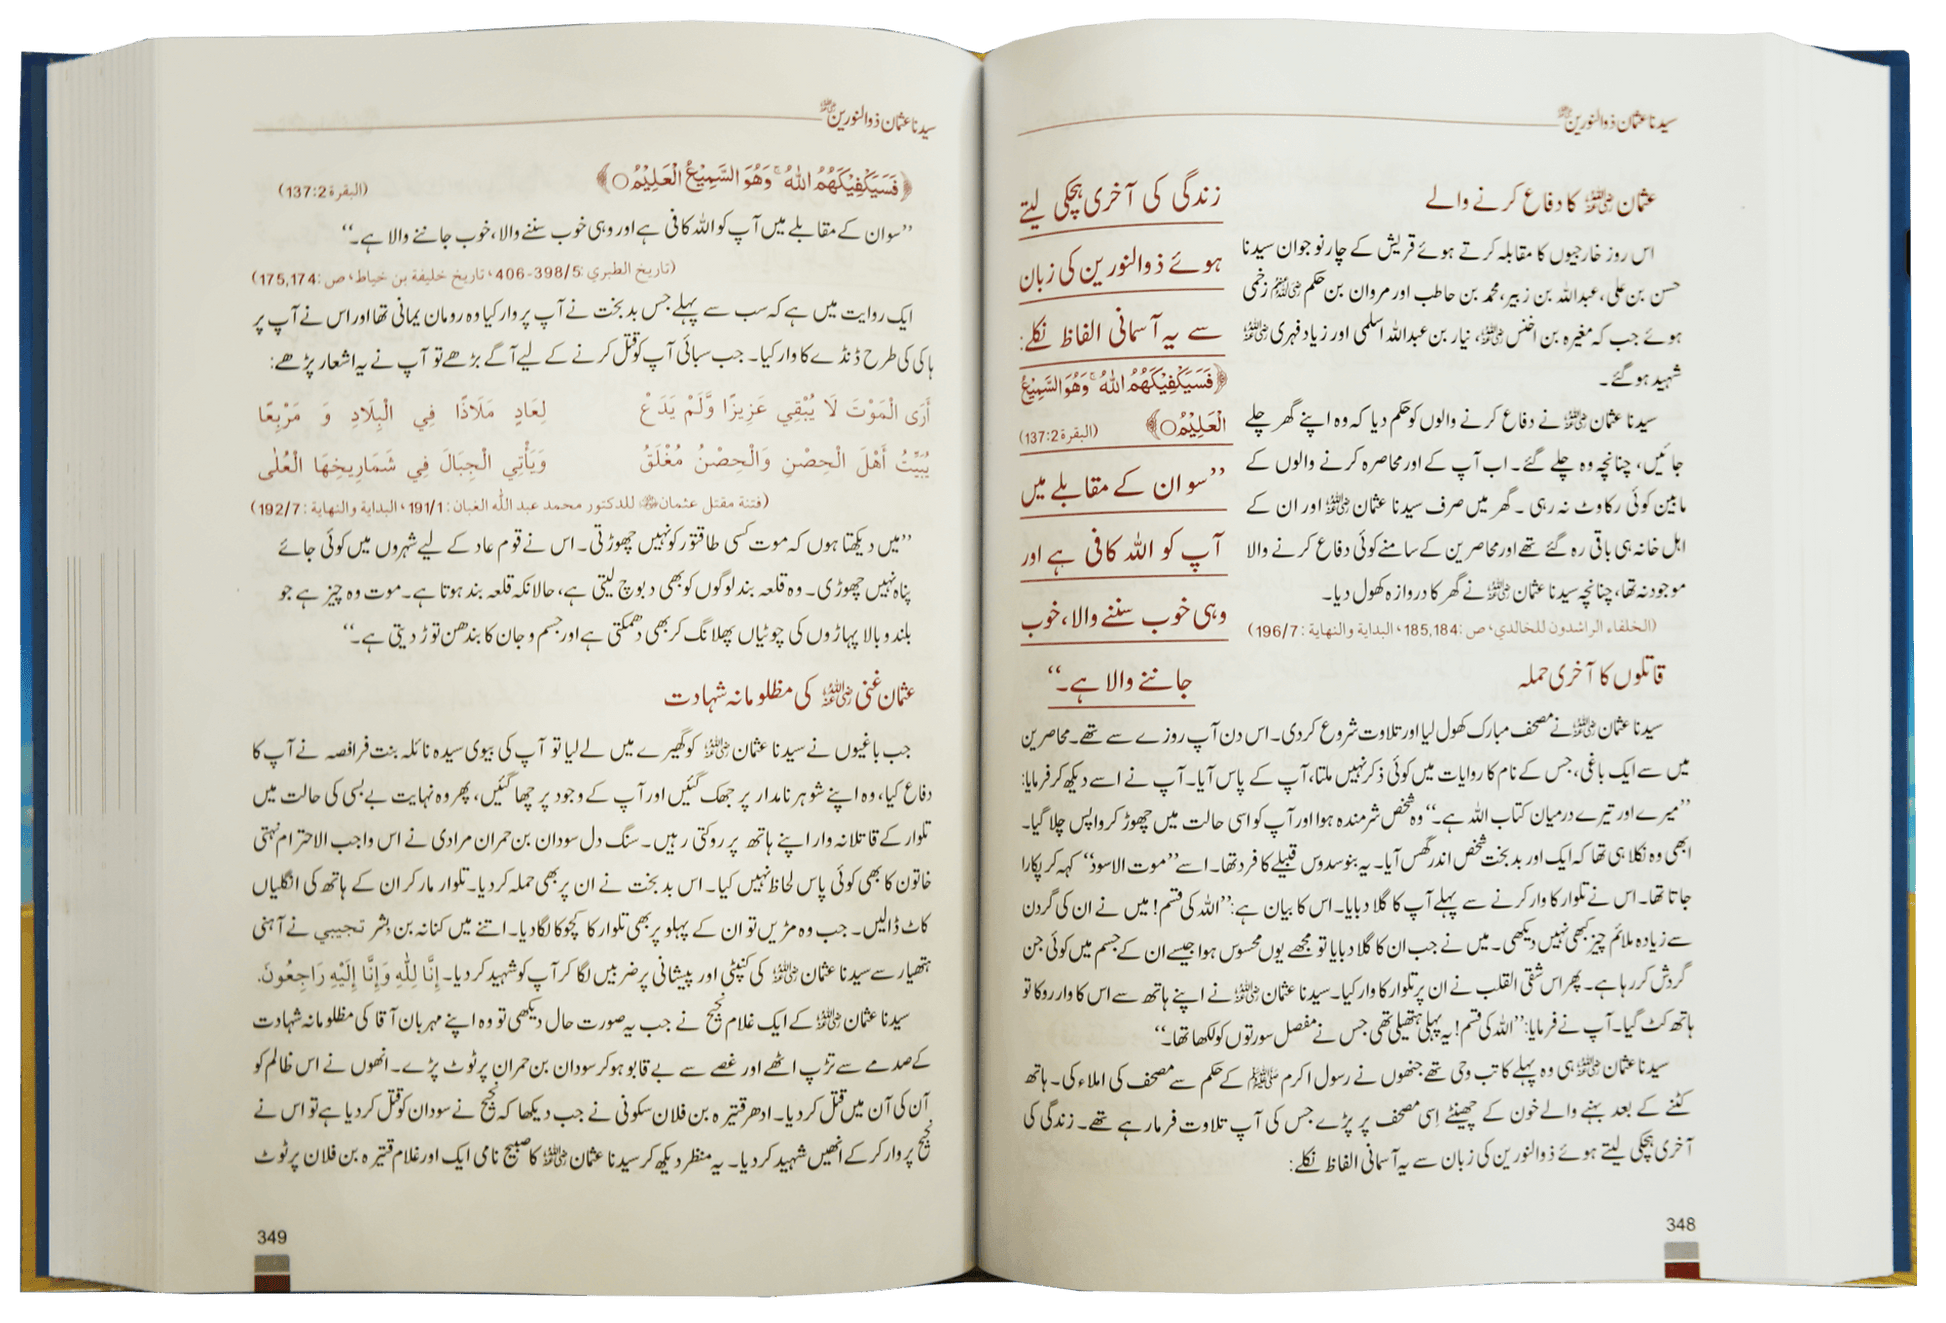 سیدنا عثمان ذوالنورین ؓ
عثمان ؓ کا دفاع کرنے والے
اس روز خارجیوں کا مقابلہ کرتے ہوئے قریش کے چار نوجوان سیدنا
حسن بن علی، عبداللہ بن زبیر، محمد بن حاطب اور مروان بن حکم ؓ زخمی
ہوئے جب کہ مغیرہ بن اخنس ؓ، نیار بن عبداللہ اسلمی اور زیاد فہری ؓ
شہید ہو گئے۔
سیدنا عثمان ؓ نے دفاع کرنے والوں کو حکم دیا کہ وہ اپنے گھر چلے
جائیں، چنانچہ وہ چلے گئے۔ اب آپ کے اور محاصرہ کرنے والوں کے
مابین کوئی رکاوٹ نہ رہی۔ گھر میں صرف سیدنا عثمان ؓ اور ان کے
اہل خانہ ہی باقی رہ گئے تھے اور محاصرین کے سامنے کوئی دفاع کرنے والا
موجود نہ تھا، چنانچہ سیدنا عثمان ؓ نے گھر کا دروازہ کھول دیا۔
(الخلفاء الراشدون للخالدي، ص: 185,184، البداية والنهاية: 196/7)
زندگی کی آخری ہچکی لیتے
ہوئے ذوالنورین کی زبان
سے یہ آسمانی الفاظ نکلے:
﴿فَسَيَكْفِيْكَهُمُ اللّٰهُ ۚ وَهُوَ السَّمِيْعُ
الْعَلِيْمُ ○﴾ (البقرة 137:2)
’’سو ان کے مقابلے میں
آپ کو اللہ کافی ہے اور
وہی خوب سننے والا، خوب
جاننے والا ہے۔‘‘
قاتلوں کا آخری حملہ
سیدنا عثمان ؓ نے مصحف مبارک کھول لیا اور تلاوت شروع کر دی۔ اس دن آپ روزے سے تھے۔ محاصرین
میں سے ایک باغی، جس کے نام کا روایات میں کوئی ذکر نہیں ملتا، آپ کے پاس آیا۔ آپ نے اسے دیکھ کر فرمایا:
’’میرے اور تیرے درمیان کتاب اللہ ہے۔‘‘ وہ شخص شرمندہ ہوا اور آپ کو اسی حالت میں چھوڑ کر واپس چلا گیا۔
ابھی وہ نکلا ہی تھا کہ ایک اور بدبخت شخص اندر گھس آیا۔ یہ بنو سدوس قبیلے کا فرد تھا۔ اسے ’’موت الاسود‘‘ کہہ کر پکارا
جاتا تھا۔ اس نے تلوار کا وار کرنے سے پہلے آپ کا گلا دبایا۔ اس کا بیان ہے: ’’اللہ کی قسم! میں نے ان کی گردن
سے زیادہ ملائم چیز کبھی نہیں دیکھی۔ میں نے جب ان کا گلا دبایا تو مجھے یوں محسوس ہوا جیسے ان کے جسم میں کوئی جن
گردش کر رہا ہے۔ پھر اس شقی القلب نے ان پر تلوار کا وار کیا۔ سیدنا عثمان ؓ نے اپنے ہاتھ سے اس کا وار روکا تو
ہاتھ کٹ گیا۔ آپ نے فرمایا: ’’اللہ کی قسم! یہ پہلی ہتھیلی تھی جس نے مفصل سورتوں کو لکھا تھا۔‘‘
سیدنا عثمان ؓ ہی وہ پہلے کاتب وحی تھے جنھوں نے رسول اکرم ﷺ کے حکم سے مصحف کی املاء کی۔ ہاتھ
کٹنے کے بعد بہنے والے خون کے چھینٹے اِسی مصحف پر پڑے جس کی آپ تلاوت فرما رہے تھے۔ زندگی کی
آخری ہچکی لیتے ہوئے ذوالنورین کی زبان سے یہ آسمانی الفاظ نکلے:
348
سیدنا عثمان ذوالنورین ؓ
﴿فَسَيَكْفِيْكَهُمُ اللّٰهُ ۚ وَهُوَ السَّمِيْعُ الْعَلِيْمُ ○﴾ (البقرة 137:2)
’’سو ان کے مقابلے میں آپ کو اللہ کافی ہے اور وہی خوب سننے والا، خوب جاننے والا ہے۔‘‘
(تاریخ الطبري: 398/5-406، تاریخ خليفة بن خياط، ص: 175,174)
ایک روایت میں ہے کہ سب سے پہلے جس بدبخت نے آپ پر وار کیا وہ رومان یمانی تھا اور اس نے آپ پر
ہاکی کی طرح ڈنڈے کا وار کیا۔ جب سبائی آپ کو قتل کرنے کے لیے آگے بڑھے تو آپ نے یہ اشعار پڑھے:
أَرَى الْمَوْتَ لَا يُبْقِي عَزِيزًا وَّلَمْ يَدَعْ لِعَادٍ مَلَاذًا فِي الْبِلَادِ وَ مَرْبِعًا
يُبَيِّتُ أَهْلَ الْحِصْنِ وَالْحِصْنُ مُغْلَقُ وَيَأْتِي الْجِبَالَ فِي شَمَارِيخِهَا الْعُلٰى
(فتنة مقتل عثمان ؓ للدكتور محمد عبد الله الغبان: 191/1، البداية والنهاية: 192/7)
’’میں دیکھتا ہوں کہ موت کسی طاقتور کو نہیں چھوڑتی۔ اس نے قوم عاد کے لیے شہروں میں کوئی جائے
پناہ نہیں چھوڑی۔ وہ قلعہ بند لوگوں کو بھی دبوچ لیتی ہے، حالانکہ قلعہ بند ہوتا ہے۔ موت وہ چیز ہے جو
بلند و بالا پہاڑوں کی چوٹیاں پھلانگ کر بھی دھمکتی ہے اور جسم و جان کا بندھن توڑ دیتی ہے۔‘‘
عثمان غنی ؓ کی مظلومانہ شہادت
جب باغیوں نے سیدنا عثمان ؓ کو گھیرے میں لے لیا تو آپ کی بیوی سیدہ نائلہ بنت فرافصہ نے آپ کا
دفاع کیا، وہ اپنے شوہر نامدار پر جھک گئیں اور آپ کے وجود پر چھا گئیں، پھر وہ نہایت بے بسی کی حالت میں
تلوار کے قاتلانہ وار اپنے ہاتھ پر روکتی رہیں۔ سنگ دل سودان بن حمران مرادی نے اس واجب الاحترام نہتی
خاتون کا بھی کوئی پاس لحاظ نہیں کیا۔ اس بدبخت نے ان پر بھی حملہ کر دیا۔ تلوار مار کر ان کے ہاتھ کی انگلیاں
کاٹ ڈالیں۔ جب وہ مڑیں تو ان کے پہلو پر بھی تلوار کا کچوکا لگا دیا۔ اتنے میں کنانہ بن بشر تجیبی نے آہنی
ہتھیار سے سیدنا عثمان ؓ کی کنپٹی اور پیشانی پر ضربیں لگا کر آپ کو شہید کر دیا۔ إِنَّا لِلّٰهِ وَإِنَّا إِلَيْهِ رَاجِعُونَ.
سیدنا عثمان ؓ کے ایک غلام نجیح نے جب یہ صورت حال دیکھی تو وہ اپنے مہربان آقا کی مظلومانہ شہادت
کے صدمے سے تڑپ اٹھے اور غصے سے بے قابو ہو کر سودان بن حمران پر ٹوٹ پڑے۔ انھوں نے اس ظالم کو
آن کی آن میں قتل کر دیا۔ ادھر قتیرہ بن فلان سکونی نے جب دیکھا کہ نجیح نے سودان کو قتل کر دیا ہے تو اس نے
نجیح پر وار کر کے انھیں شہید کر دیا۔ یہ منظر دیکھ کر سیدنا عثمان ؓ کا صبیح نامی ایک اور غلام قتیرہ بن فلان پر ٹوٹ
349